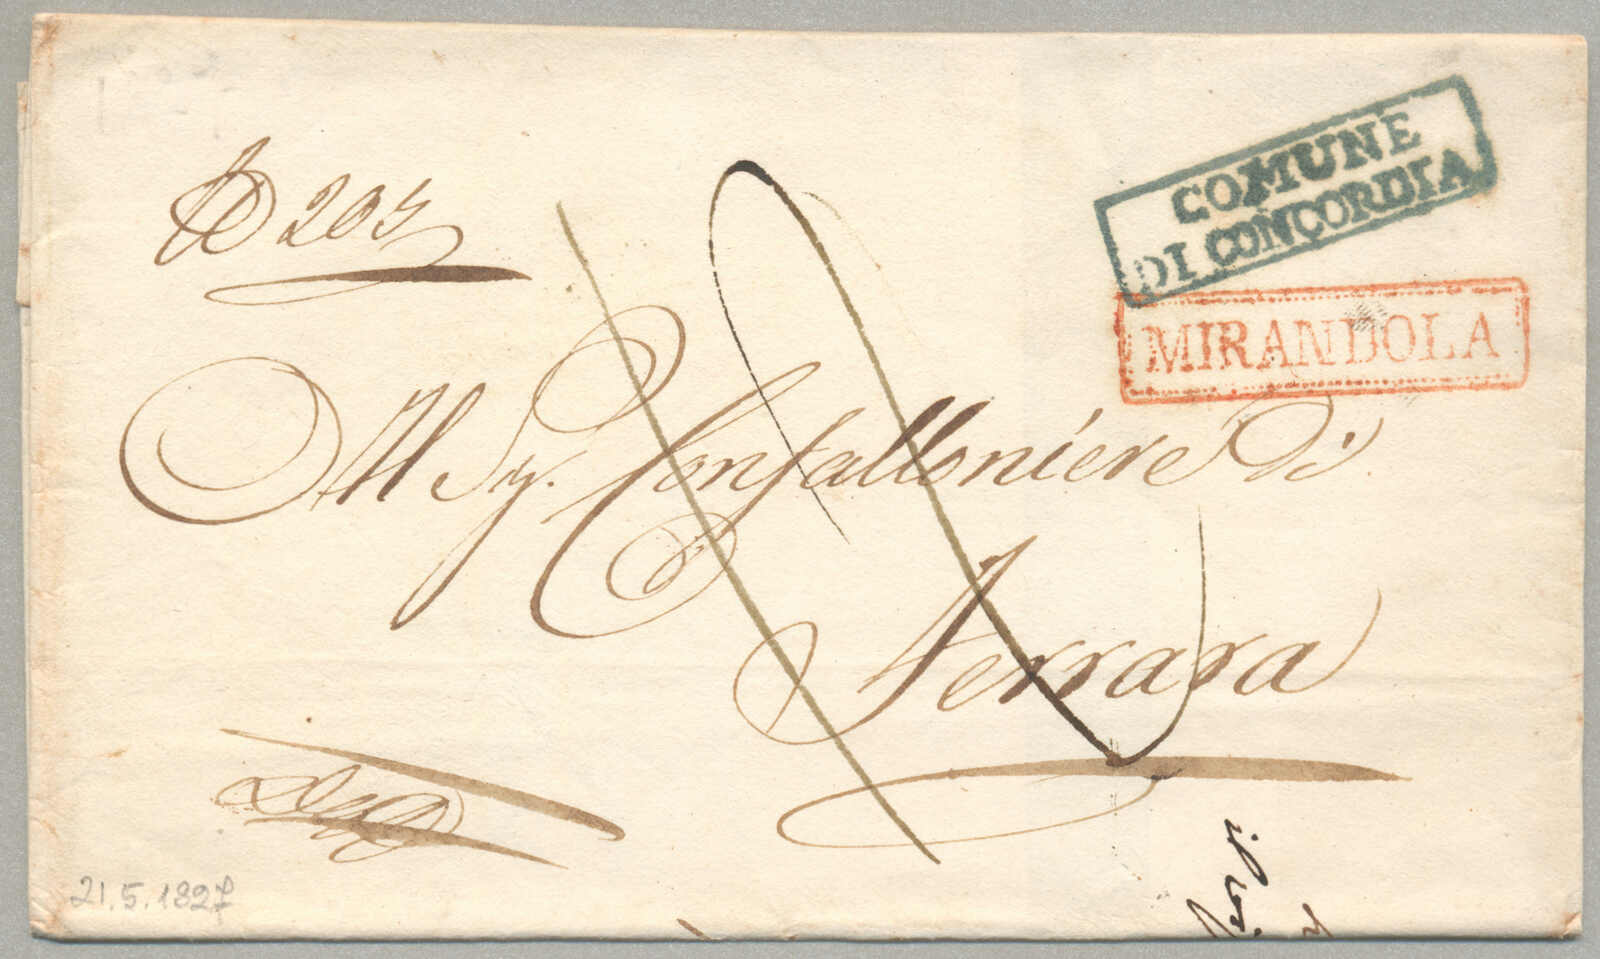 N 205
COMUNE
DI CONCORDIA
MIRANDOLA
Al Sig. Gonfalloniere Di
Ferrara
21.5.1827